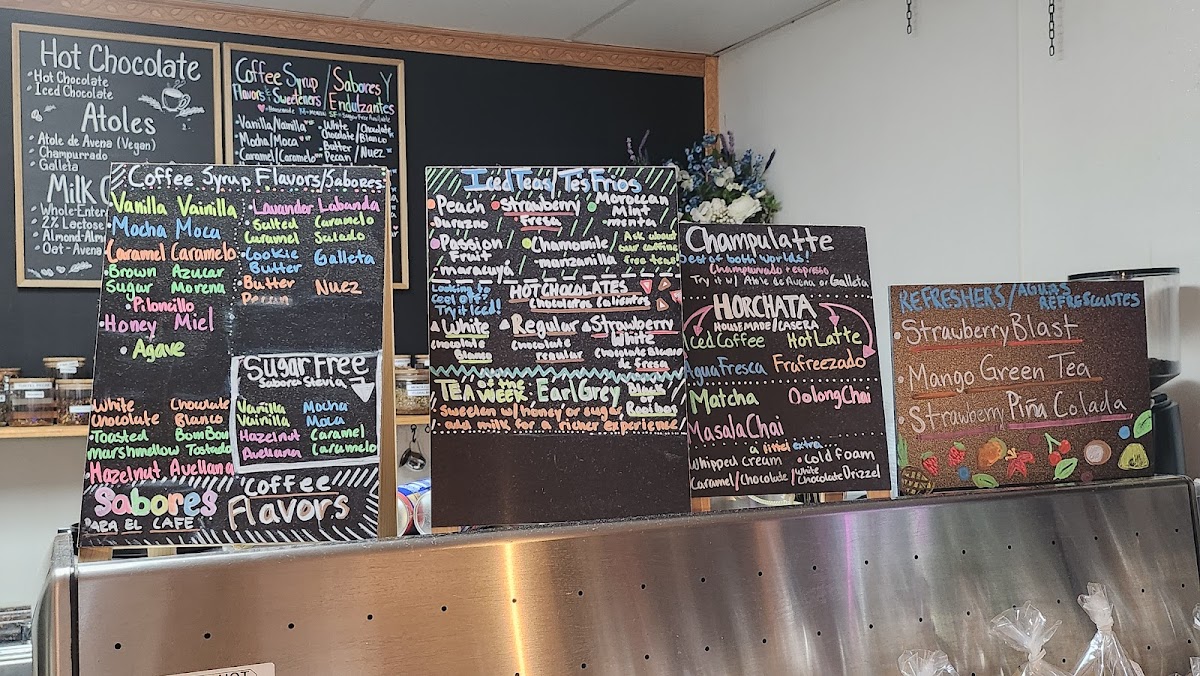 Hot Chocolate
• Hot Chocolate
• Iced Chocolate
Atoles
• Atole de Avena (Vegan)
• Champurrado
• Galleta
Milk
• Whole-Enter
• 2% Lactose
• Almond-Alm
• Oat-Avena
Coffee Syrup / Sabores Y
Flavors & Sweeteners / Endulzantes
• Vanilla/Vainilla
• Mocha/Moca
• Caramel/Caramelo
• White / Chocolate
Chocolate / Blanco
• Butter
Pecan / Nuez
Coffee Syrup Flavors/Sabores
Vanilla Vainilla
• Mocha Moca
Caramel Caramelo
• Brown Azucar
Sugar Morena
Piloncillo
• Honey Miel
• Agave
• Lavander Labanda
• Salted Caramelo
Caramel Salado
• Cookie Galleta
Butter
• Butter Nuez
Pecan
White Chocolate
Chocolate Blanco
• Toasted BomBon
Marshmellow Tostado
• Hazelnut Avellana
Sugar Free
Sabores Stevia
Vanilla Mocha
Vainilla Moca
Hazelnut Caramel
Avellana Caramelo
Sabores
PARA EL CAFE
Coffee
Flavors
Iced Teas/Tes Frios
• Peach
Durazno
• Strawberry
Fresa
• Moroccan
Mint
menta
• Passion
Fruit /
maracuyá
• Chamomile/
manzanilla
Ask about
our caffine
free teas!
Looking to
cool off?
Try it Iced!
HOT CHOCOLATES
Chocolates Calientes
White
Chocolate
Blanco
Regular
Chocolate
regular
Strawberry
White
Chocolate Blanco
de fresa
TEA of the
WEEK: Earl Grey Black
or
Rooibos
• sweeten w/ honey or sugar
• add milk for a richer experience
Champulatte
best of both worlds!
Champurrado + espresso
Try it w/ Atole de Avena or Galleta
HORCHATA
HOUSEMADE/CASERA
Iced Coffee Hot Latte
Agua Fresca Frafreezado
Matcha Oolong Chai
Masala Chai
a little extra
Whipped cream • Cold foam
Caramel/Chocolate/White
Chocolate Drizzel
REFRESHERS/AGUAS
REFRESCANTES
• Strawberry Blast
• Mango Green Tea
• Strawberry Piña Colada